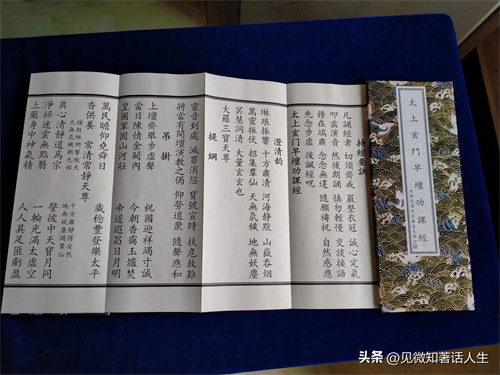 太上玄門早壇功課經
持經要訣
凡誦經者 切須齋戒 嚴整衣冠 誠心定氣
叩齒演音 然後朗誦 慎勿輕慢 交談接語
務在端肅 念念無違 隨願禱祝 自然感應
先念步虛 後誦經咒
太上玄門早壇功課經
澄清韻
琳琅振響 十方肅清 河海靜默 山嶽吞烟
萬靈振伏 招集羣仙 天無氛穢 地無妖塵
冥慧洞清 大量玄玄也
大羅三寶天尊
提綱
靈音到處 滅罪消愆 寶號宣時 扶危救難
將當有開壇演教之偈 仰勞道衆 隨聲應和
吊掛
上壇齊舉步虛聲 祝國迎祥竭寸誠
當日陳情金闕內 今朝香靄玉爐焚
皇圖鞏固山河壯 帝道遐昌日月明
萬民瞻仰堯舜日 歲稔豐登樂太平
香供養 常清常靜天尊
真心清靜道為宗 譬彼中天寶月同
淨掃迷雲無點翳 一輪光滿太虛空
上藥身中神氣精 人人具足匪虧盈
头条 @见微知著话人生